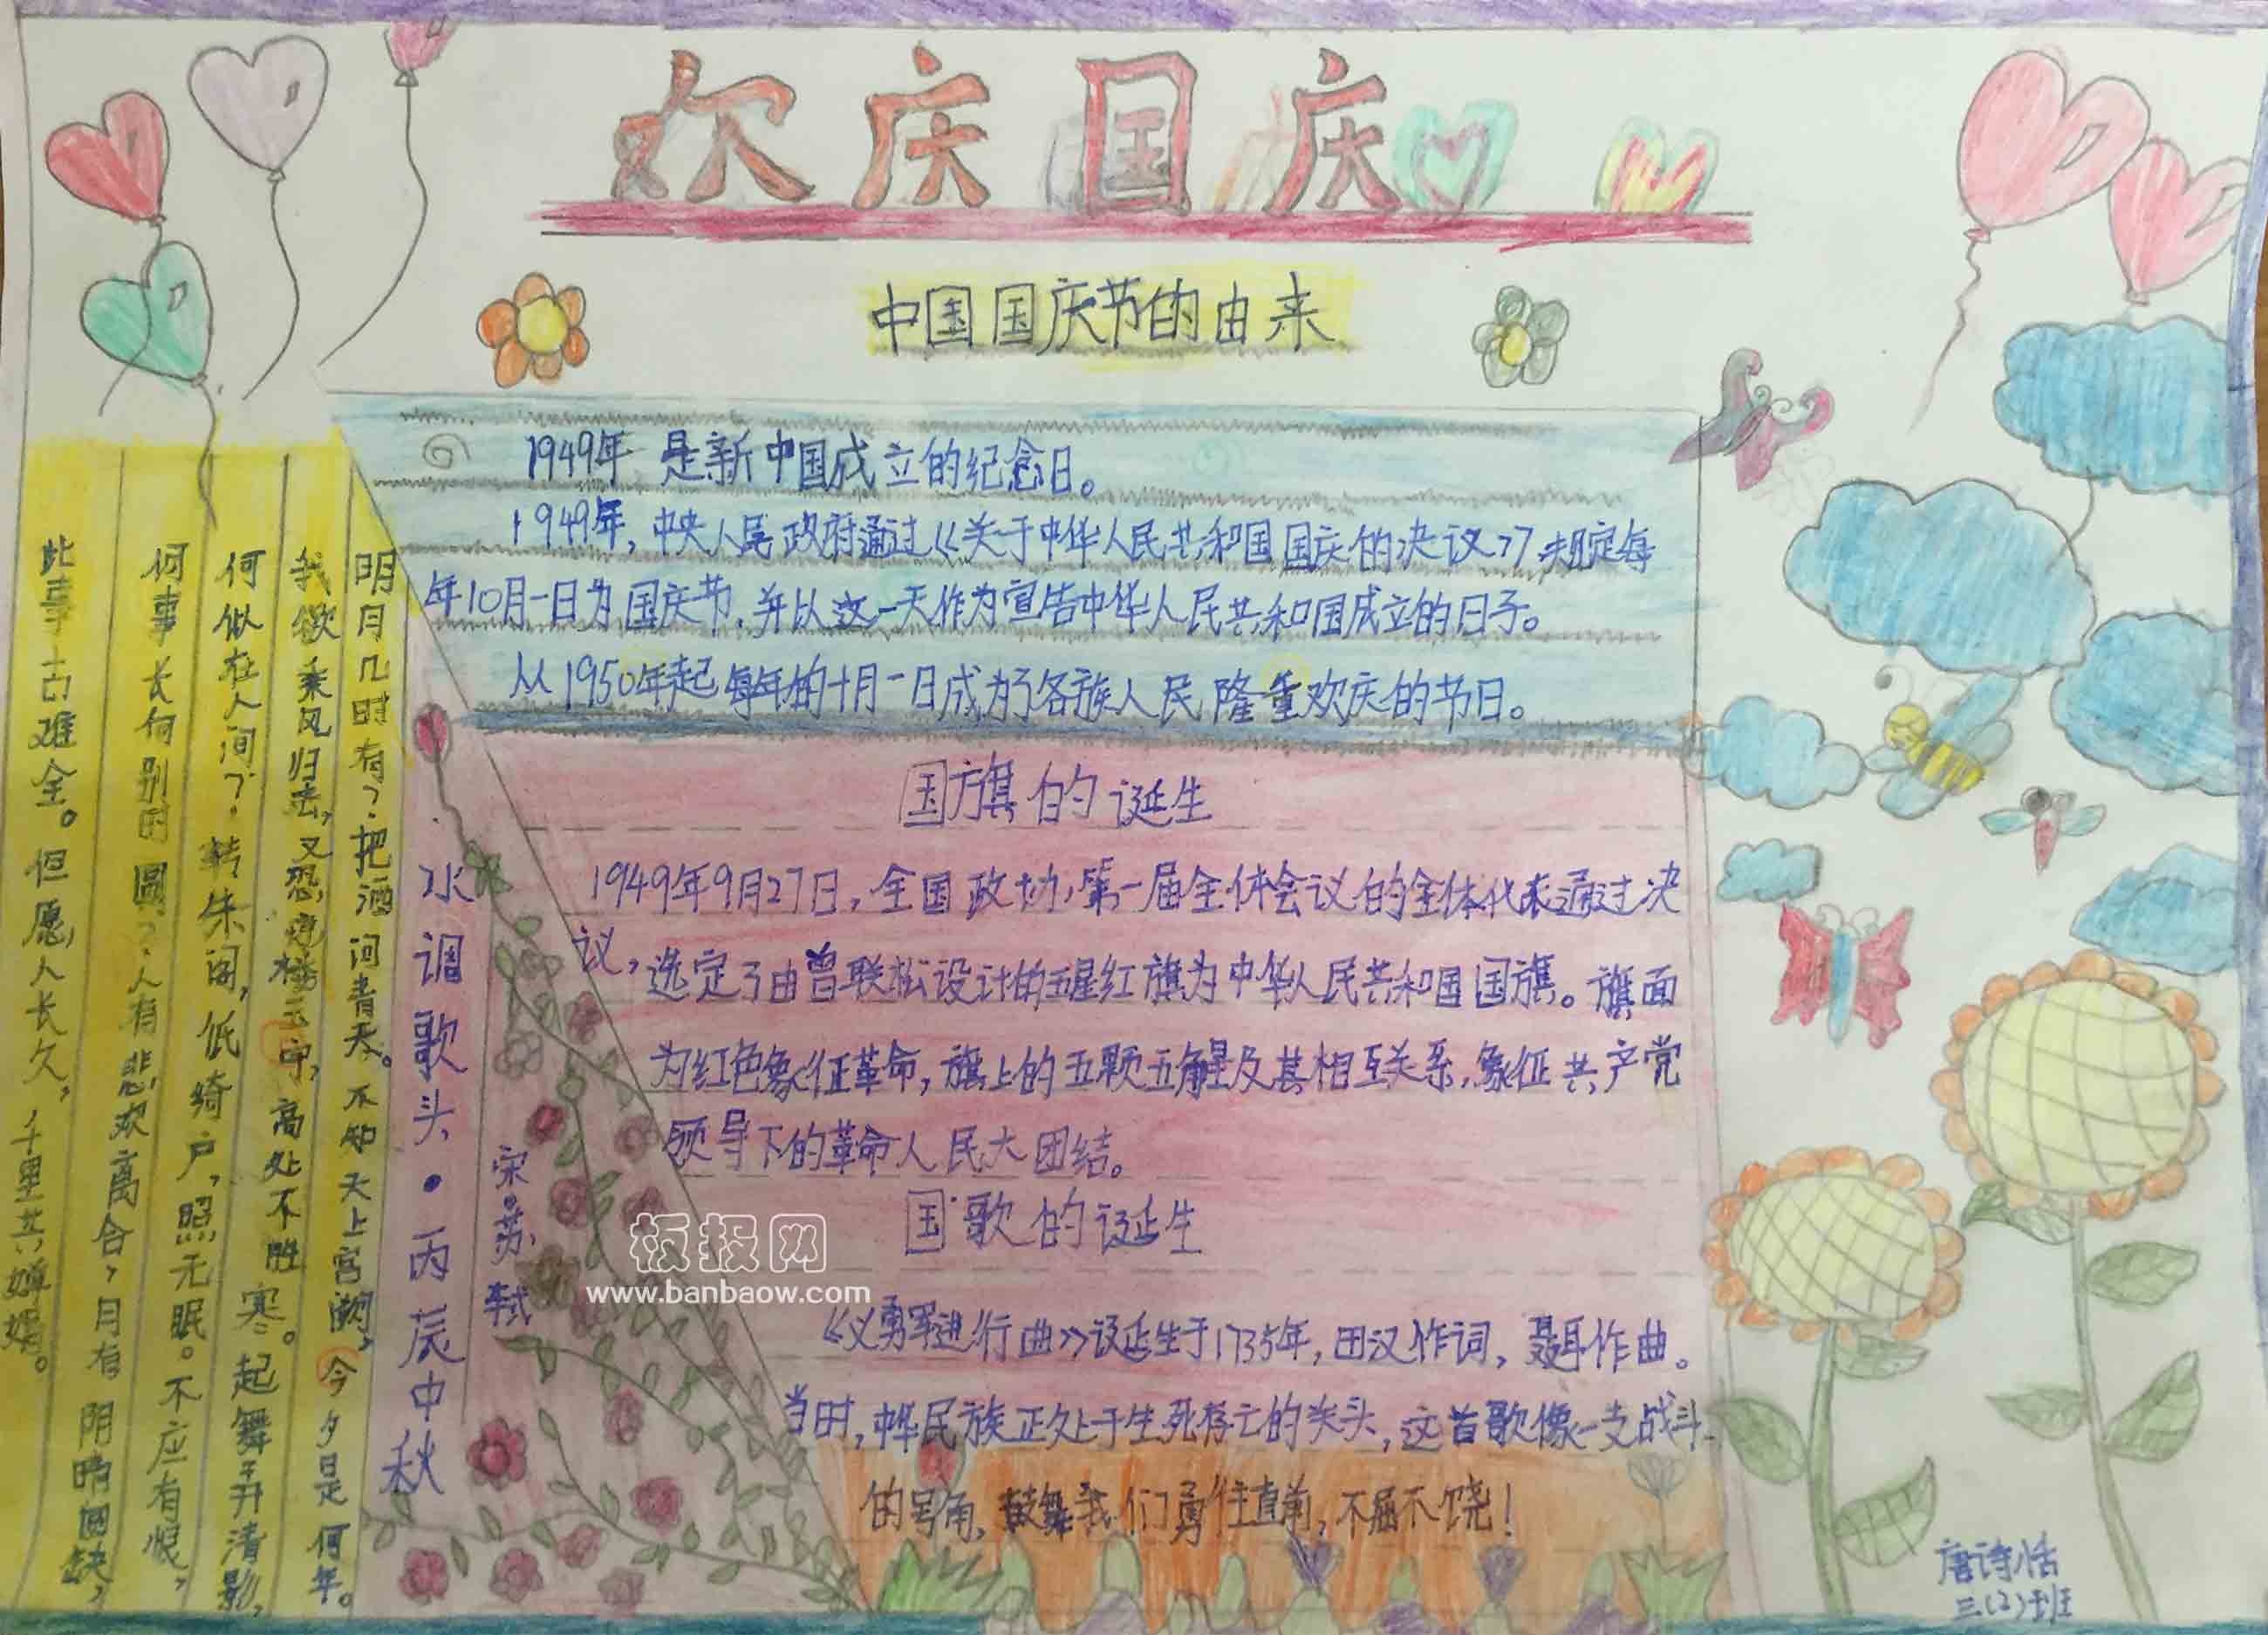 欢庆国庆
中国国庆节的由来
1949年 是新中国成立的纪念日。
1949年，中央人民政府通过《关于中华人民共和国国庆的决议》，规定每
年10月一日为国庆节，并以这一天作为宣告中华人民共和国成立的日子。
从1950年起每年的十月一日成为了各族人民隆重欢庆的节日。
国旗的诞生
1949年9月27日，全国政协，第一届全体会议的全体代表通过决
议，选定了由曾联松设计的五星红旗为中华人民共和国国旗。旗面
为红色象征革命，旗上的五颗五角星及其相互关系，象征共产党
领导下的革命人民大团结。
国歌的诞生
《义勇军进行曲》诞生于1735年，田汉作词，聂耳作曲。
当时，中华民族正处于生死存亡的关头，这首歌像一支战斗
的号角，鼓舞我们勇往直前，不屈不饶！
水调歌头·丙辰中秋
宋·苏轼
明月几时有？把酒问青天。不知天上宫阙，今夕是何年。
我欲乘风归去，又恐琼楼玉宇，高处不胜寒。起舞弄清影，
何似在人间？转朱阁，低绮户，照无眠。不应有恨，
何事长向别时圆？人有悲欢离合，月有阴晴圆缺，
此事古难全。但愿人长久，千里共婵娟。
唐诗恬
三(2)班
板报网
www.banbaow.com